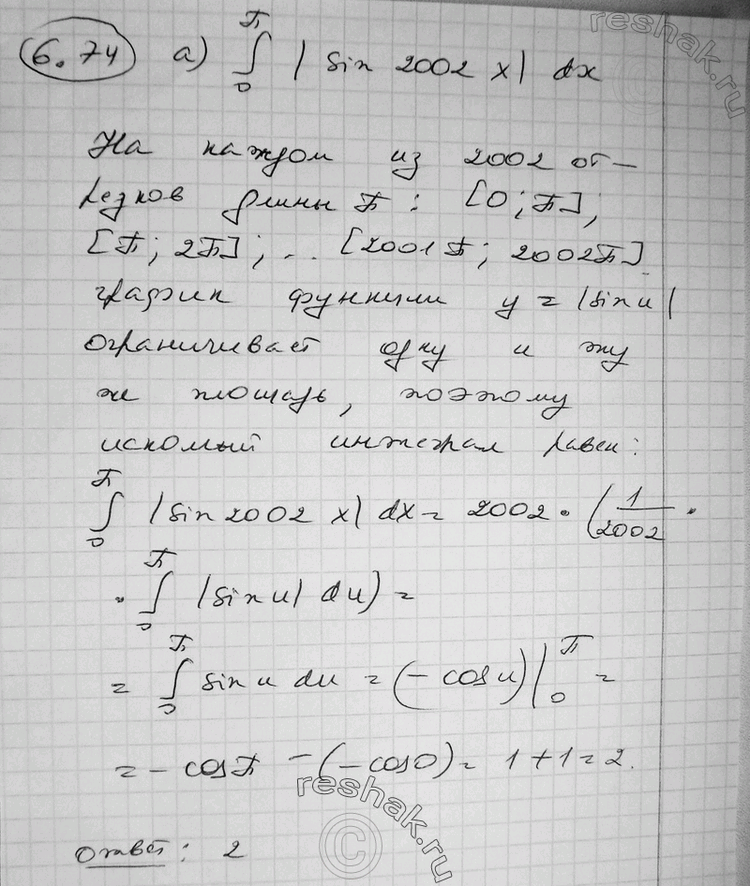 6.74 а) ∫₀^π | sin 2002 x| dx
На каждом из 2002 от-
резков длины π: [0; π];
[π; 2π]; .. [2001π; 2002π]
график функции y = |sin u|
ограничивает одну и ту
же площадь, поэтому
искомый интеграл равен:
∫₀^π |sin 2002 x| dx = 2002 · (1/2002 ·
· ∫₀^π |sin u| du) =
= ∫₀^π sin u du = (- cos u)|₀^π =
= - cos π - (- cos 0) = 1 + 1 = 2.
Ответ: 2
reshak.ru
reshak.ru
©
reshak.ru